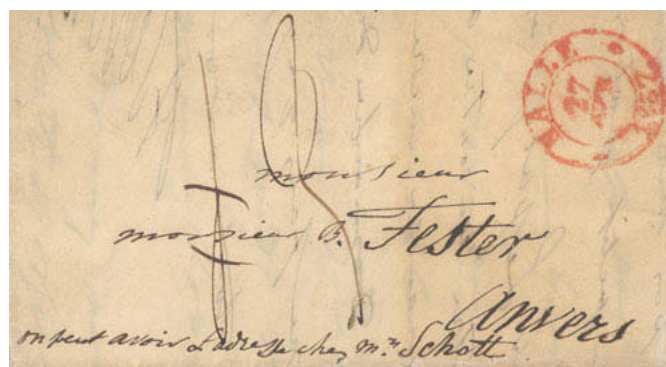 HALLE
27
monsieur
monsieur B. Fester
Anvers
on peut avoir L'adresse chez mrs Schott